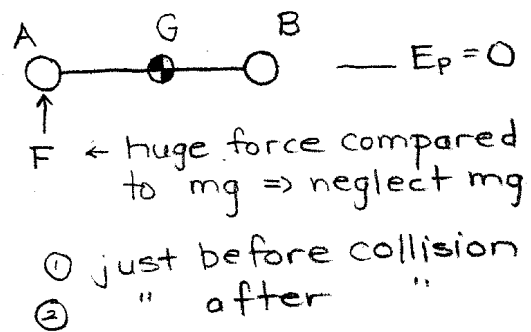 A G B
E_P = 0
F ← huge force compared
to mg ⇒ neglect mg
① just before collision
② " after "